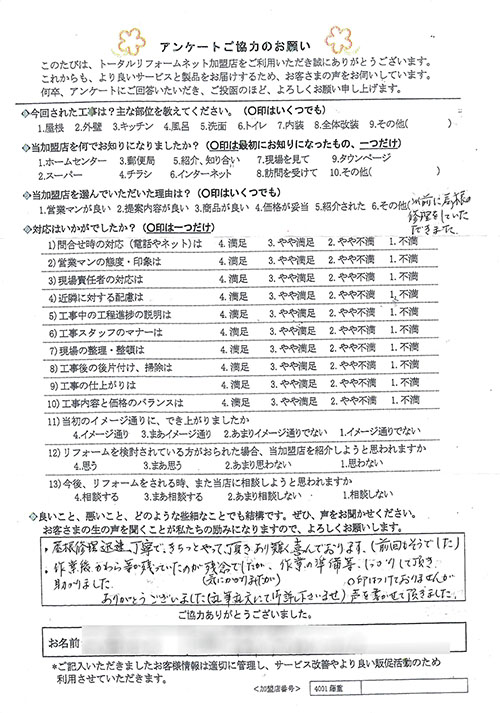 アンケートご協力のお願い
このたびは、トータルリフォームネット加盟店をご利用いただき誠にありがとうございます。
これからも、より良いサービスと製品をお届けするため、お客さまの声をお伺いしています。
何卒、アンケートにご回答いただき、ご投函のほど、よろしくお願い申し上げます。
◆今回された工事は？主な部位を教えてください。（○印はいくつでも）
1.屋根 2.外壁 3.キッチン 4.風呂 5.洗面 6.トイレ 7.内装 8.全体改装 9.その他( )
◆当加盟店を何でお知りになりましたか？（○印は最初にお知りになったもの、一つだけ）
1.ホームセンター 3.郵便局 5.紹介、知り合い 7.現場を見て 9.タウンページ
2.スーパー 4.チラシ 6.インターネット 8.訪問を受けて 10.その他( )
◆当加盟店を選んでいただいた理由は？（○印はいくつでも）
1.営業マンが良い 2.提案内容が良い 3.商品が良い 4.価格が妥当 5.紹介された 6.その他(以前に屋根の
修理をしていた
だきました
◆対応はいかがでしたか？（○印は一つだけ）
1)問合せ時の対応（電話やネット）は 4.満足 3.やや満足 2.やや不満 1.不満
2)営業マンの態度・印象は 4.満足 3.やや満足 2.やや不満 1.不満
3)現場責任者の対応は 4.満足 3.やや満足 2.やや不満 1.不満
4)近隣に対する配慮は 4.満足 3.やや満足 2.やや不満 1.不満
5)工事中の工程進捗の説明は 4.満足 3.やや満足 2.やや不満 1.不満
6)工事スタッフのマナーは 4.満足 3.やや満足 2.やや不満 1.不満
7)現場の整理・整頓は 4.満足 3.やや満足 2.やや不満 1.不満
8)工事後の後片付け、掃除は 4.満足 3.やや満足 2.やや不満 1.不満
9)工事の仕上がりは 4.満足 3.やや満足 2.やや不満 1.不満
10)工事内容と価格のバランスは 4.満足 3.やや満足 2.やや不満 1.不満
11)当初のイメージ通りに、でき上がりましたか
4.イメージ通り 3.まあイメージ通り 2.あまりイメージ通りでない 1.イメージ通りでない
12)リフォームを検討されている方がおられた場合、当加盟店を紹介しようと思われますか
4.思う 3.まあ思う 2.あまり思わない 1.思わない
13)今後、リフォームをされる時、また当店に相談しようと思われますか
4.相談する 3.まあ相談する 2.あまり相談しない 1.相談しない
◆良いこと、悪いこと、どのような些細なことでも結構です。ぜひ、声をお聞かせください。
お客さまの生の声を聞くことが私たちの励みになりますので、よろしくお願いします。
・屋根修理迅速、丁寧で、きちっとやって頂きあり難く喜んでおります。(前回もそうでした)
・作業後かわら等が残っていたのが残念でしたが、作業の準備等、しっかりして頂き
助かりました (気にかかりますが) ○印はつけておりませんが
ありがとうございました 声を書かせて頂きました。
ご協力ありがとうございました。
お名前
*ご記入いただきましたお客様情報は適切に管理し、サービス改善やより良い販促活動のため
利用させていただきます。
＜加盟店番号＞ 4001 藤重